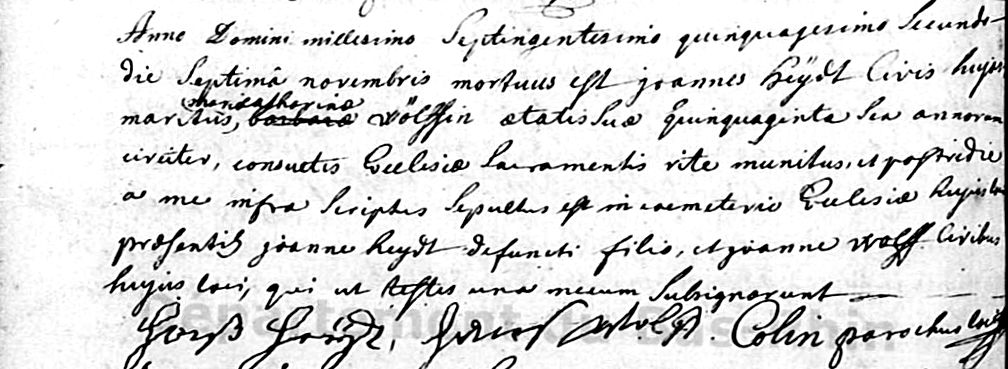 Anno Domini millesimo Septingentesimo quinquagesimo Secundo
die Septimâ novembris mortuus est joannes heÿdt Civis hujus
mariæ catharinæ
maritus, barbaræ wölffin ætatis suæ quinquaginta sex annorum
circiter, consuetis Ecclesiæ Sacramentis rite munitus, et postridie
a me infra Scriptus Sepultus est in cæmeterio Ecclesiæ hujus loci
præsentib9 joanne heydt defuncti filio, et joanne wolff Civibus
hujus loci, qui ut testes una mecum Subsignarunt
Colin parochus loci